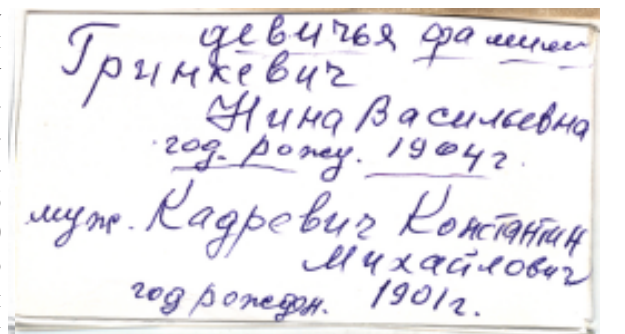 девичья фамили
Гринкевич
Нина Васильевна
год. рожд. 1904г.
муж. Кадревич Константин
Михайлович
год рождён. 1901г.